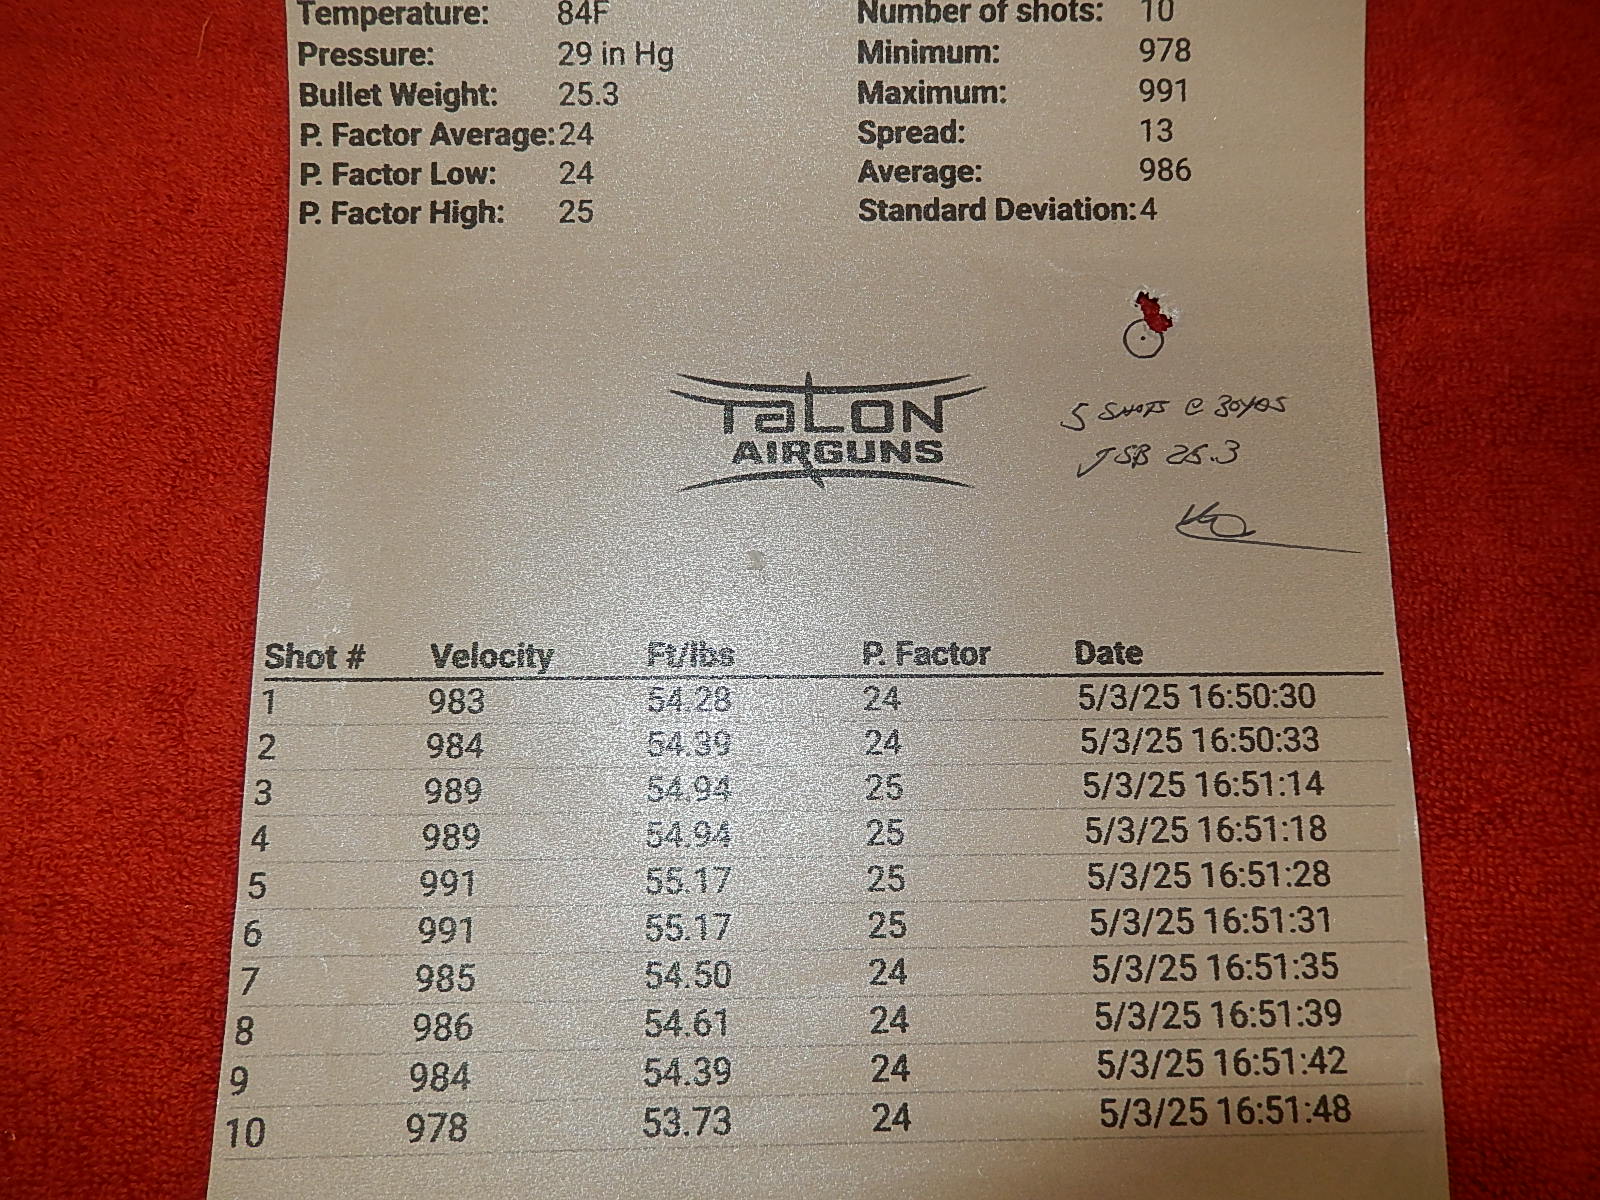 Temperature: 84F Number of shots: 10
Pressure: 29 in Hg Minimum: 978
Bullet Weight: 25.3 Maximum: 991
P. Factor Average: 24 Spread: 13
P. Factor Low: 24 Average: 986
P. Factor High: 25 Standard Deviation: 4
TaLON
AIRGUNS
5 SHOTS @ 30YDS
JSB 25.3
Shot # Velocity Ft/lbs P. Factor Date
1 983 54.28 24 5/3/25 16:50:30
2 984 54.39 24 5/3/25 16:50:33
3 989 54.94 25 5/3/25 16:51:14
4 989 54.94 25 5/3/25 16:51:18
5 991 55.17 25 5/3/25 16:51:28
6 991 55.17 25 5/3/25 16:51:31
7 985 54.50 24 5/3/25 16:51:35
8 986 54.61 24 5/3/25 16:51:39
9 984 54.39 24 5/3/25 16:51:42
10 978 53.73 24 5/3/25 16:51:48